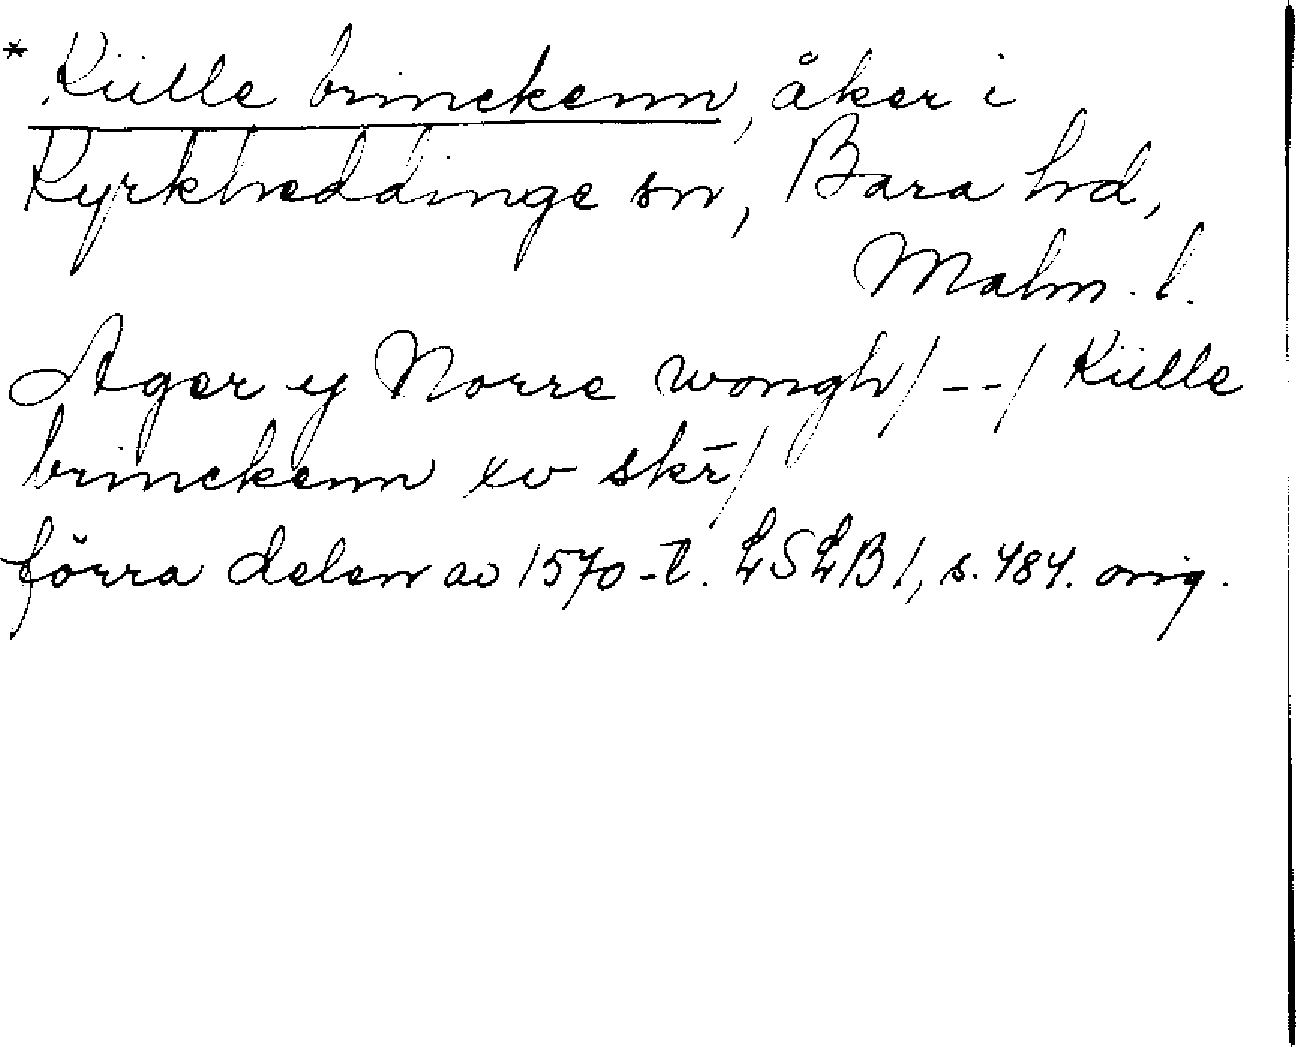 * Kiille brinckenn, åker i
Kyrkheddinge sn, Bara hd,
Malm. l.
Ager ij Norre wongh/--/ Kiille
brinckenn xv skr̄/
förra delen av 1570-t. LSLB 1, s. 484. orig.